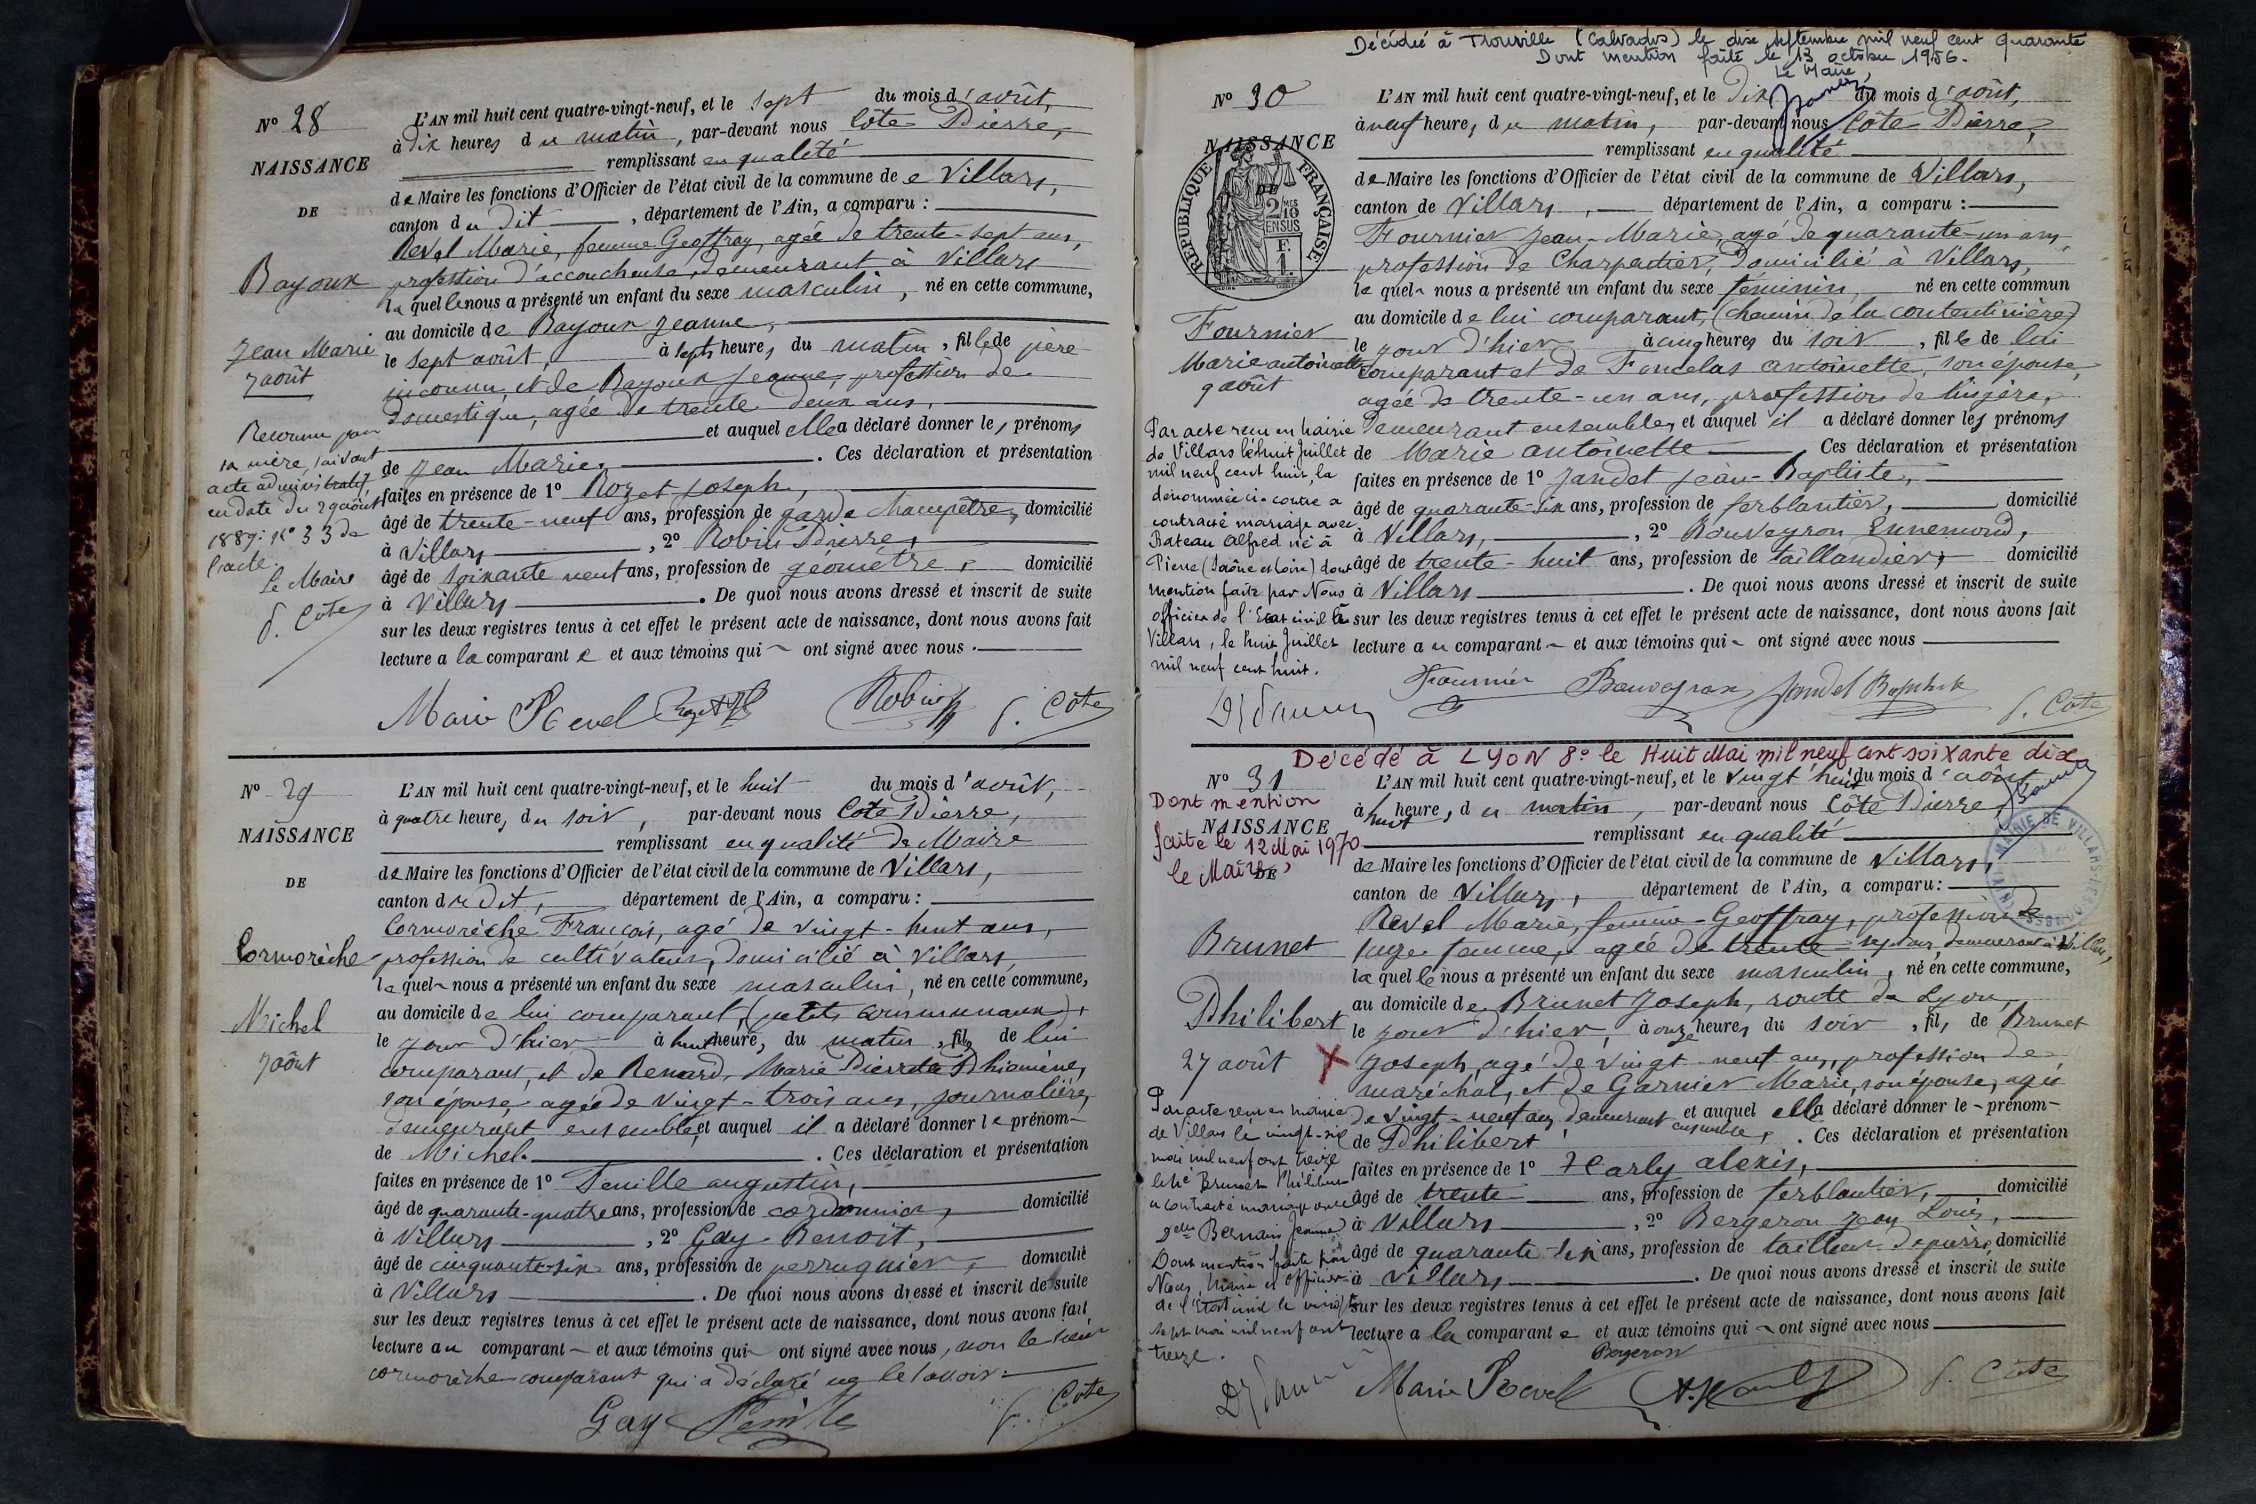 N° 28
NAISSANCE
DE
Bayoux
Jean Marie
7 août
Reconnu par
sa mère, suivant
acte administratif
en date du 29 août
1889: N° 33 de
l'acte.
Le Maire
P. Côte
L'AN mil huit cent quatre-vingt-neuf, et le sept du mois d'août,
à dix heures du matin, par-devant nous Côte Pierre,
remplissant en qualité
de Maire les fonctions d'Officier de l'état civil de la commune de Villars,
canton du dit, département de l'Ain, a comparu :
Revel Marie, femme Geoffray, agée de trente-sept ans,
profession d'accoucheuse, demeurant à Villars
laquelle nous a présenté un enfant du sexe masculin, né en cette commune,
au domicile de Bayoux Jeanne,
le sept août, à sept heures du matin, fils de père
inconnu, et de Bayoux Jeanne, profession de
domestique, agée de trente deux ans,
et auquel elle a déclaré donner les prénoms
de Jean Marie. Ces déclaration et présentation
faites en présence de 1° Rozet Joseph,
âgé de trente-neuf ans, profession de garde champêtre, domicilié
à Villars, 2° Robin Pierre,
âgé de soixante neuf ans, profession de géomètre, domicilié
à Villars. De quoi nous avons dressé et inscrit de suite
sur les deux registres tenus à cet effet le présent acte de naissance, dont nous avons fait
lecture a la comparante et aux témoins qui ont signé avec nous.
Marie Revel Robin P. Côte
N° 29
NAISSANCE
DE
Cormorèche
Michel
7 août
L'AN mil huit cent quatre-vingt-neuf, et le huit du mois d'août,
à quatre heures du soir, par-devant nous Côte Pierre,
remplissant en qualité de Maire
de Maire les fonctions d'Officier de l'état civil de la commune de Villars,
canton du dit, département de l'Ain, a comparu :
Cormorèche François, agé de vingt-huit ans,
profession de cultivateur, domicilié à Villars,
lequel nous a présenté un enfant du sexe masculin, né en cette commune,
au domicile de lui comparant, (petits communaux),
le jour d'hier à huit heures, du matin, fils de lui
comparant, et de Renard, Marie Pierrette Philomène,
son épouse, agée de vingt-trois ans, journalière,
demeurant ensemble, et auquel il a déclaré donner le prénom
de Michel. Ces déclaration et présentation
faites en présence de 1° Feuille augustin,
âgé de quarante-quatre ans, profession de cordonnier, domicilié
à Villars, 2° Gay Benoît,
âgé de cinquante-six ans, profession de perruquier, domicilié
à Villars. De quoi nous avons dressé et inscrit de suite
sur les deux registres tenus à cet effet le présent acte de naissance, dont nous avons fait
lecture au comparant et aux témoins qui ont signé avec nous, non le sieur
cormorèche comparant qui a déclaré ne le savoir.
Gay Feuille P. Côte
Décédée à Trouville (Calvados) le dix septembre mil neuf cent quarante
Dont mention faite le 13 octobre 1956.
Le Maire,
N° 30
NAISSANCE
DE
RÉPUBLIQUE FRANÇAISE
2/10 EN SUS
Fournier
Marie antoinette
9 août
Par acte reçu en Mairie
de Villars le huit Juillet
mil neuf cent huit, la
dénommée ci-contre a
contracté mariage avec
Bateau Alfred né à
Pierre (Saône et Loire) dont
mention faite par Nous
officier de l'Etat civil à
Villars, le huit Juillet
mil neuf cent huit.
L'AN mil huit cent quatre-vingt-neuf, et le dix du mois d'août,
à neuf heures, du matin, par-devant nous Côte Pierre,
remplissant en qualité
de Maire les fonctions d'Officier de l'état civil de la commune de Villars,
canton de Villars, département de l'Ain, a comparu :
Fournier Jean-Marie, agé de quarante-un ans,
profession de Charpentier, domicilié à Villars,
lequel nous a présenté un enfant du sexe féminin, né en cette commun
au domicile de lui comparant, (chemin de la contentinière)
le jour d'hier à cinq heures du soir, fille de lui
comparant et de Foncelas antoinette, son épouse,
agée de trente-un ans, profession de lingère,
demeurant ensemble, et auquel il a déclaré donner les prénoms
de Marie antoinette. Ces déclaration et présentation
faites en présence de 1° Jandet Jean-Baptiste,
âgé de quarante-six ans, profession de ferblantier, domicilié
à Villars, 2° Bouveyron Ennemond,
âgé de trente-huit ans, profession de taillandier, domicilié
à Villars. De quoi nous avons dressé et inscrit de suite
sur les deux registres tenus à cet effet le présent acte de naissance, dont nous avons fait
lecture au comparant et aux témoins qui ont signé avec nous
Fournier Bouveyron Jandet Baptiste P. Côte
Décédé à LYON 8e le Huit Mai mil neuf cent soixante dix
N° 31
Dont mention
NAISSANCE
faite le 12 Mai 1970
le Maire,
DE
Brunet
Philibert
27 août
Par acte reçu en mairie
de Villars le vingt-six
mai mil neuf cent treize
le sé Brunet Philibert
a contracté mariage avec
Delle Bernain Jeanne
Dont mention faite par
Nous, Maire et officier
de l'Etat civil le vingt
sept mai mil neuf cent
treize.
L'AN mil huit cent quatre-vingt-neuf, et le vingt huit du mois d'août
à huit heures, du matin, par-devant nous Côte Pierre,
remplissant en qualité
de Maire les fonctions d'Officier de l'état civil de la commune de Villars,
canton de Villars, département de l'Ain, a comparu:
Revel Marie, femme Geoffray, profession de
sage-femme, agée de trente-sept ans, demeurant à Villars,
laquelle nous a présenté un enfant du sexe masculin, né en cette commune,
au domicile de Brunet Joseph, route de Lyon,
le jour d'hier, à onze heures du soir, fils de Brunet
Joseph, agé de vingt-neuf ans, profession de
maréchal, et de Garnier Marie, son épouse, agée
de vingt-neuf ans, demeurant ensemble, et auquel elle a déclaré donner le prénom
de Philibert. Ces déclaration et présentation
faites en présence de 1° Harly alexis,
âgé de trente ans, profession de ferblantier, domicilié
à Villars, 2° Bergeron Jean Louis,
âgé de quarante-six ans, profession de tailleur de pierre, domicilié
à Villars. De quoi nous avons dressé et inscrit de suite
sur les deux registres tenus à cet effet le présent acte de naissance, dont nous avons fait
lecture a la comparante et aux témoins qui ont signé avec nous
Bergeron
Marie Revel P. Côte